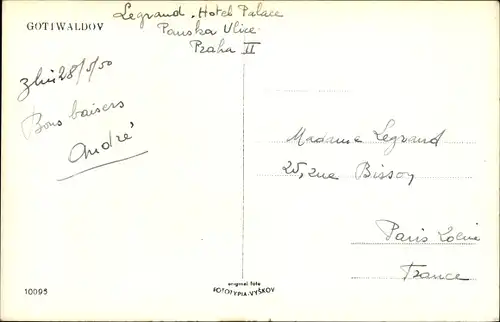 GOTTWALDOV
Legrand. Hotel Palace
Panska Ulice
Praha II
28/5/50
Bons baisers
André
Madame Legrand
25, rue Bissoy
Paris
France
10095
original foto
FOTOTYPIA-VYŠKOV